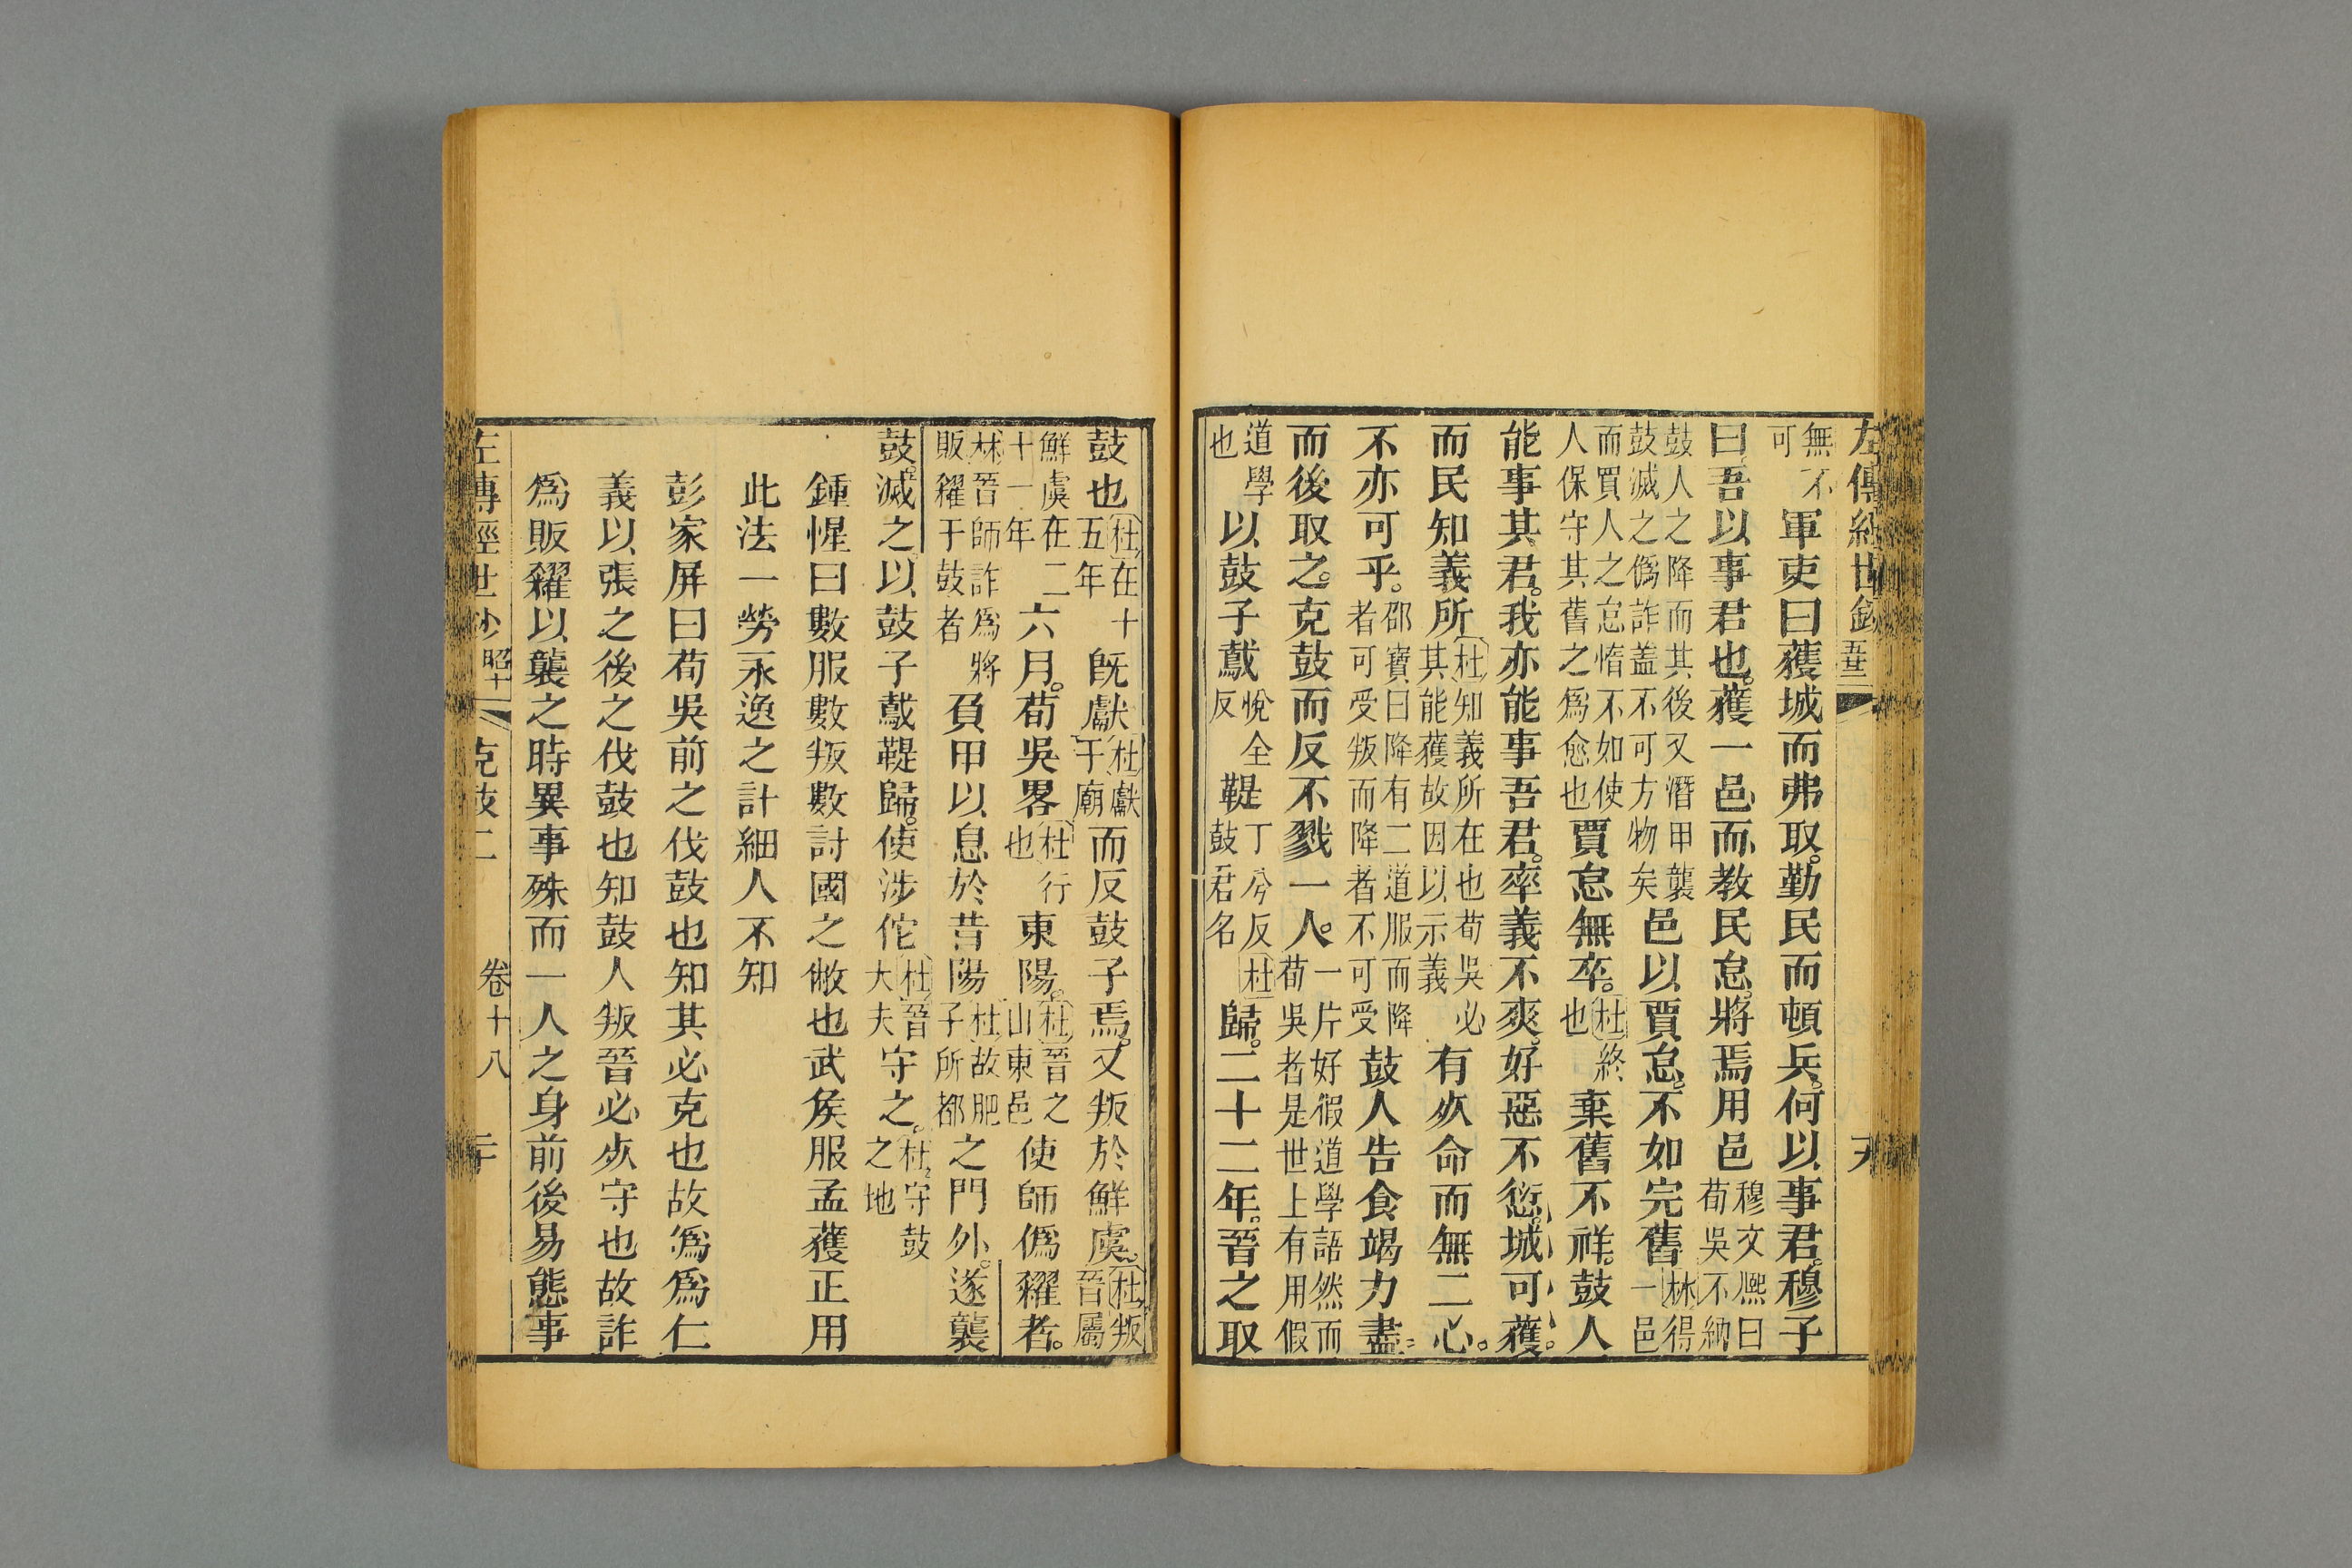 無不可軍吏曰獲城而弗取勤民而頓兵何以事君穆子
曰吾以事君也獲一邑而教民怠將焉用邑穆文熈曰荀吳不納
鼓人之降而其後又潛甲襲鼓滅之僞詐盖不可方物矣邑以賈怠不如完舊林得一邑
而買人之怠惰不如使人保守其舊之爲愈也賈怠無卒杜終也棄舊不祥鼓人
能事其君我亦能事吾君率義不爽好惡不愆城可獲
而民知義所杜知義所在也荀吳必其能獲故因以示義有死命而無二心
不亦可乎邵寶曰降有二道服而降者可受叛而降者不可受鼓人告食竭力盡
而後取之克鼓而反不戮一人一片好假道學語然而荀吳者是世上有用假
道學也以鼓子鳶悅全反鞮丁兮反杜鼓君名歸二十二年晉之取
鼓也杜在十五年既獻杜獻于廟而反鼓子焉又叛於鮮虞杜叛晉屬
鮮虞在二十一年六月荀吳畧杜行也東陽杜晉之山東邑使師僞糴者
林晉師詐爲將販糴于鼓者負甲以息於昔陽杜故肥子所都之門外遂襲
鼓滅之以鼓子鳶鞮歸使涉佗杜晉大夫守之杜守鼓之地
鍾惺曰數服數叛數討國之僘也武侯服孟獲正用
此法一勞永逸之計細人不知
彭家屏曰荀吳前之伐鼓也知其必克也故爲爲仁
義以張之後之伐鼓也知鼓人叛晉必死守也故詐
爲販糴以襲之時異事殊而一人之身前後易態事
左傳經世鈔 昭十 克鼓二 卷十八